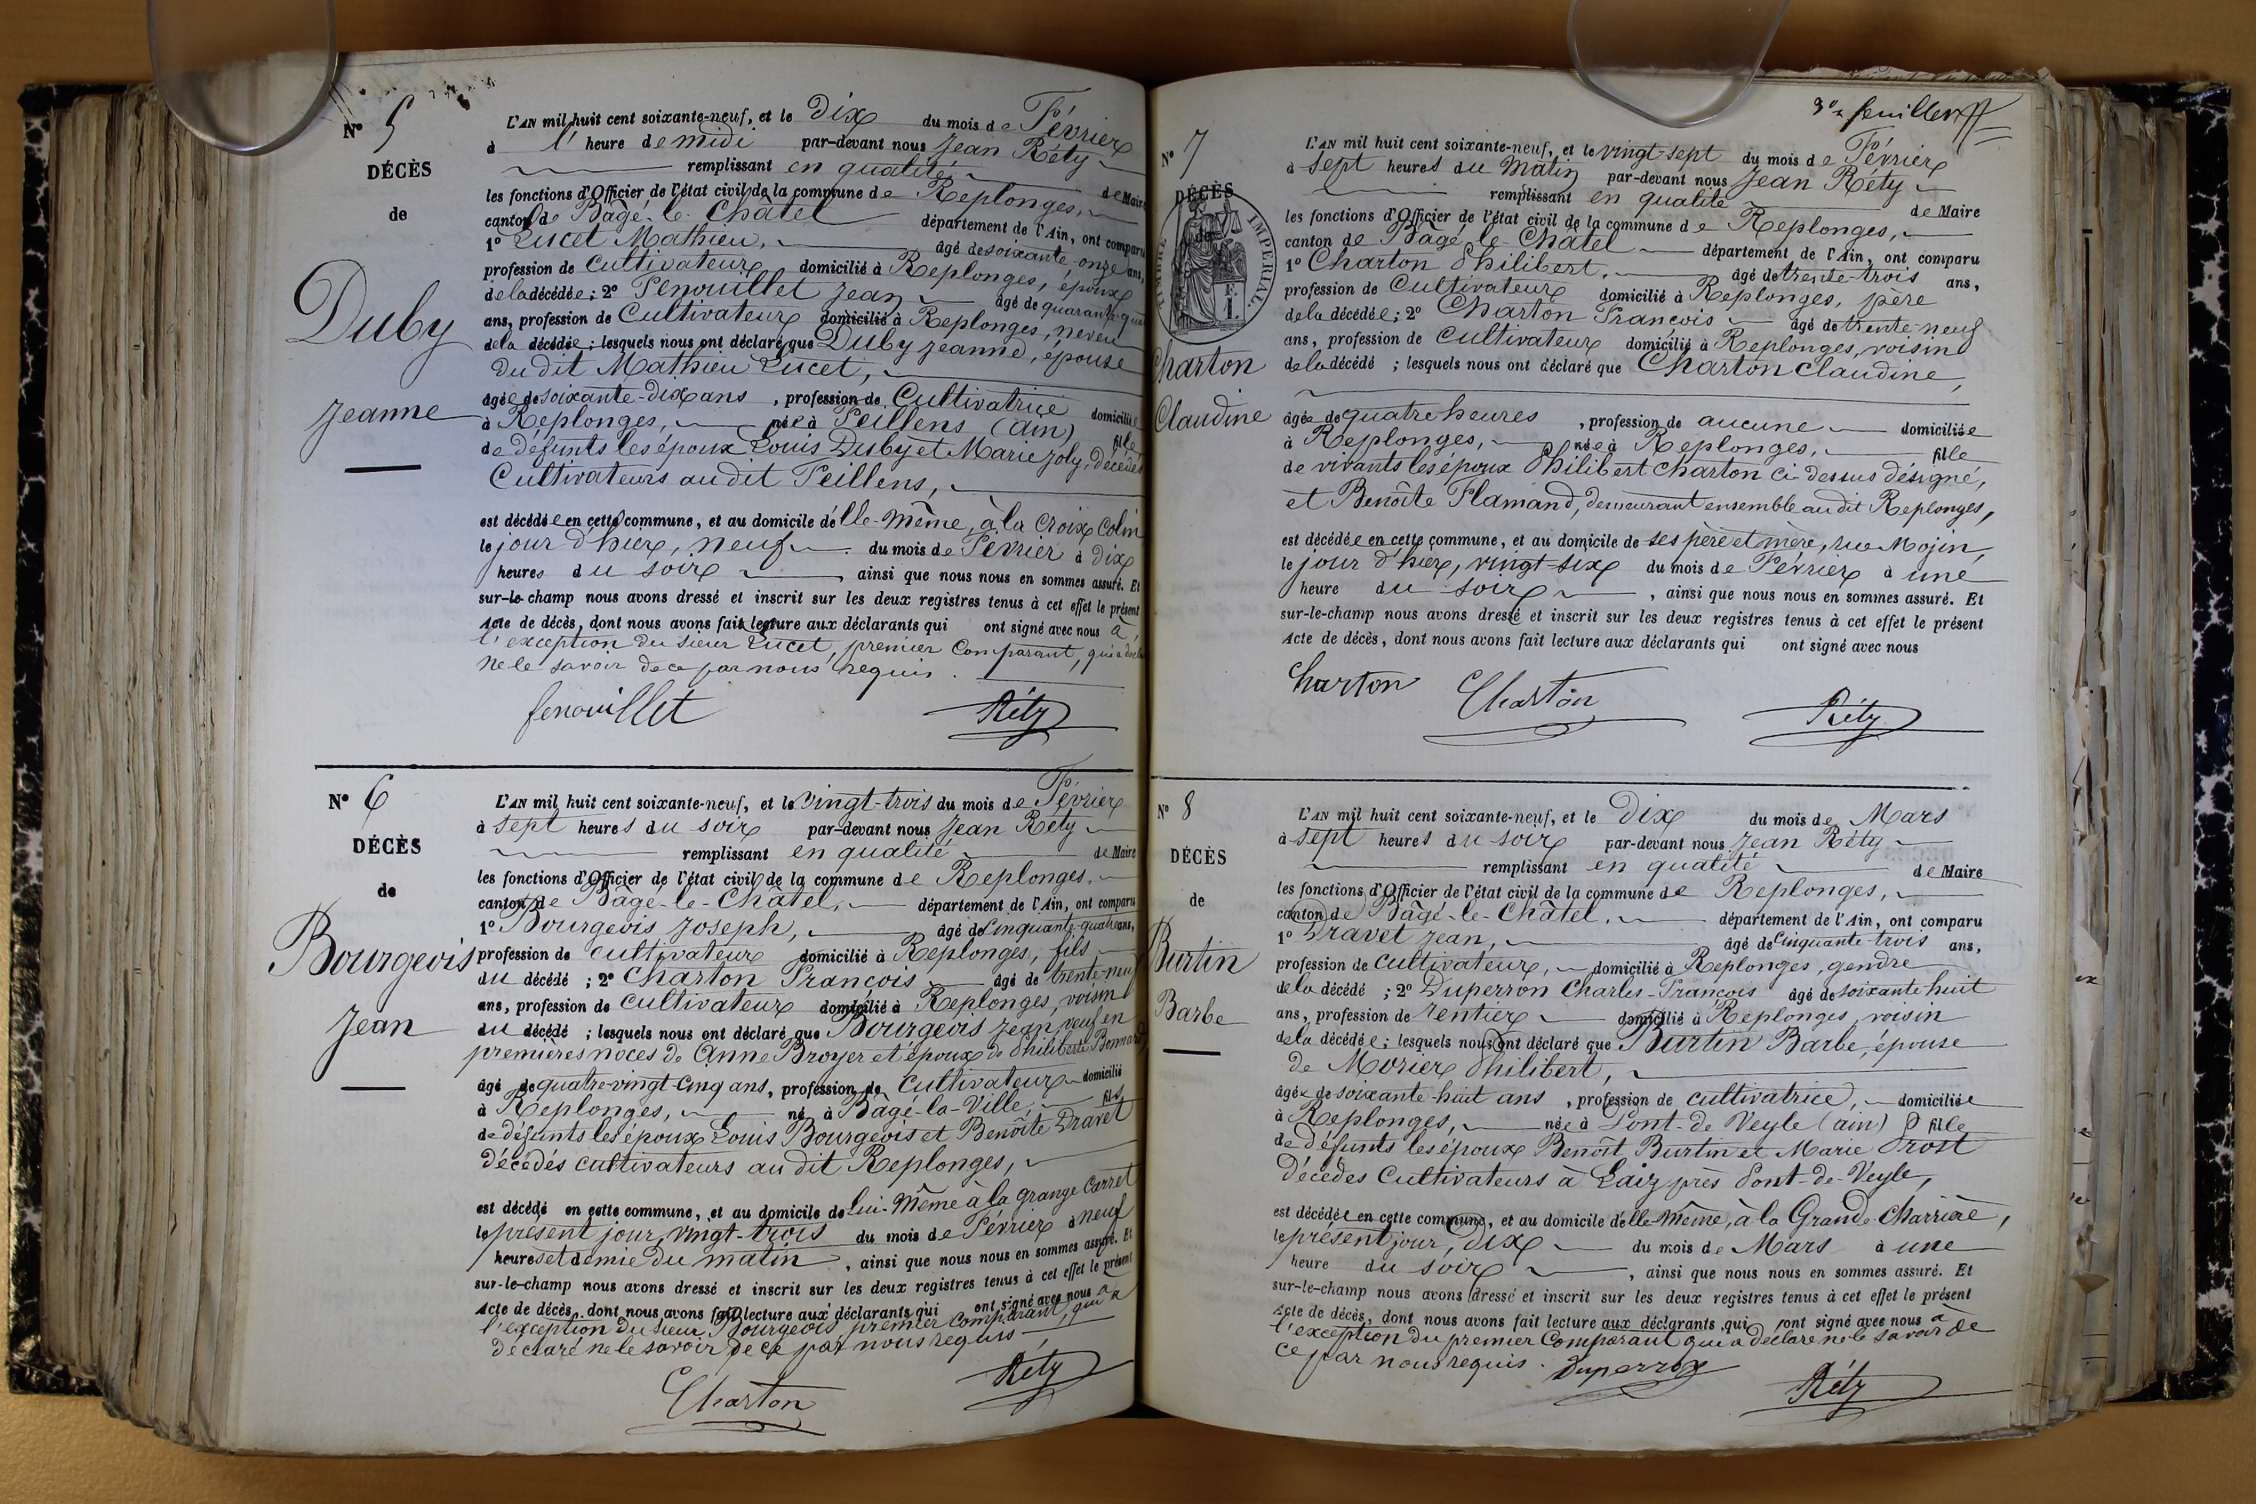 N° 5
DÉCÈS
de
Duby
Jeanne
L'AN mil huit cent soixante-neuf, et le dix du mois de Février
à l' heure de midi par-devant nous Jean Réty
remplissant en qualité de Maire
les fonctions d'Officier de l'état civil de la commune de Replonges,
canton de Bâgé-le-Châtel département de l'Ain, ont comparu
1° Lucet Mathieu, âgé de soixante-onze ans,
profession de Cultivateur domicilié à Replonges, époux
de la décédée; 2° Fenouillet Jean âgé de quarante
ans, profession de Cultivateur domicilié à Replonges, neveu
de la décédée; lesquels nous ont déclaré que Duby Jeanne, épouse
du dit Mathieu Lucet,
âgée de soixante-dix ans, profession de Cultivatrice domiciliée
à Replonges, née à Peillens (Ain) fille
de défunts les époux Louis Duby et Marie Joly, décédés
Cultivateurs au dit Peillens,
est décédée en cette commune, et au domicile d'elle-même, à la Croix Colin
le jour d'hier, neuf du mois de Février à dix
heures du soir ainsi que nous nous en sommes assuré. Et
sur-le-champ nous avons dressé et inscrit sur les deux registres tenus à cet effet le présent
Acte de décès, dont nous avons fait lecture aux déclarants qui ont signé avec nous à
l'exception du sieur Lucet, premier Comparant, qui a
ne le savoir de ce par nous requis.
fenouillet Réty
N° 6
DÉCÈS
de
Bourgeois
Jean
L'AN mil huit cent soixante-neuf, et le vingt-trois du mois de Février
à sept heures du soir par-devant nous Jean Réty
remplissant en qualité de Maire
les fonctions d'Officier de l'état civil de la commune de Replonges,
canton de Bâgé-le-Châtel, département de l'Ain, ont comparu
1° Bourgeois Joseph, âgé de Cinquante-quatre ans,
profession de cultivateur domicilié à Replonges, fils
du décédé; 2° Charton François âgé de trente-neuf
ans, profession de Cultivateur domicilié à Replonges, voisin
du décédé; lesquels nous ont déclaré que Bourgeois Jean, veuf en
premières noces de Anne Broyer et époux de Philiberte Bonnard,
âgé de quatre-vingt-cinq ans, profession de Cultivateur domicilié
à Replonges, né à Bâgé-la-Ville fils
de défunts les époux Louis Bourgeois et Benoîte Dravet
décédés cultivateurs au dit Replonges,
est décédé en cette commune, et au domicile de lui-Même à la grange Carret
le présent jour, vingt-trois du mois de Février à neuf
heures et demie du matin, ainsi que nous nous en sommes assuré. Et
sur-le-champ nous avons dressé et inscrit sur les deux registres tenus à cet effet le présent
Acte de décès, dont nous avons fait lecture aux déclarants qui ont signé avec nous à
l'exception du sieur Bourgeois premier Comparant, qui a
déclaré ne le savoir de ce par nous requis
Charton Réty
3e feuillet
N° 7
DÉCÈS
de
TIMBRE IMPÉRIAL
F.
1.
Charton
Claudine
L'AN mil huit cent soixante-neuf, et le vingt-sept du mois de Février
à sept heures du Matin par-devant nous Jean Réty
remplissant en qualité de Maire
les fonctions d'Officier de l'état civil de la commune de Replonges,
canton de Bâgé-le-Châtel département de l'Ain, ont comparu
1° Charton Philibert, âgé de trente-trois ans,
profession de Cultivateur domicilié à Replonges, père
de la décédée; 2° Charton François âgé de trente-neuf
ans, profession de Cultivateur domicilié à Replonges, voisin
de la décédé; lesquels nous ont déclaré que Charton Claudine,
âgée de quatre heures, profession de aucune domiciliée
à Replonges, née à Replonges, fille
de vivants les époux Philibert Charton ci-dessus désigné,
et Benoîte Flamand, demeurant ensemble au dit Replonges,
est décédée en cette commune, et au domicile de ses père et mère, rue Mojin,
le jour d'hier, vingt-six du mois de Février à une
heure du soir, ainsi que nous nous en sommes assuré. Et
sur-le-champ nous avons dressé et inscrit sur les deux registres tenus à cet effet le présent
Acte de décès, dont nous avons fait lecture aux déclarants qui ont signé avec nous
Charton Charton Réty
N° 8
DÉCÈS
de
Burtin
Barbe
L'AN mil huit cent soixante-neuf, et le Dix du mois de Mars
à sept heures du soir par-devant nous Jean Réty
remplissant en qualité de Maire
les fonctions d'Officier de l'état civil de la commune de Replonges,
canton de Bâgé-le-Châtel, département de l'Ain, ont comparu
1° Dravet Jean, âgé de Cinquante-trois ans,
profession de cultivateur, domicilié à Replonges, gendre
de la décédé; 2° Duperron Charles-François âgé de soixante huit
ans, profession de rentier domicilié à Replonges, voisin
de la décédée; lesquels nous ont déclaré que Burtin Barbe, épouse
de Morier Philibert,
âgée de soixante-huit ans, profession de cultivatrice, domiciliée
à Replonges, née à Pont-de-Veyle (Ain) fille
de défunts les époux Benoît Burtin et Marie Prost
décédés Cultivateurs à Laiz près Pont-de-Veyle,
est décédée en cette commune, et au domicile d'elle-même, à la Grande Charrière,
le présent jour, Dix du mois de Mars à une
heure du soir, ainsi que nous nous en sommes assuré. Et
sur-le-champ nous avons dressé et inscrit sur les deux registres tenus à cet effet le présent
Acte de décès, dont nous avons fait lecture aux déclarants qui ont signé avec nous à
l'exception du premier Comparant qui a déclaré ne le savoir de
ce par nous requis. Duperron
Réty